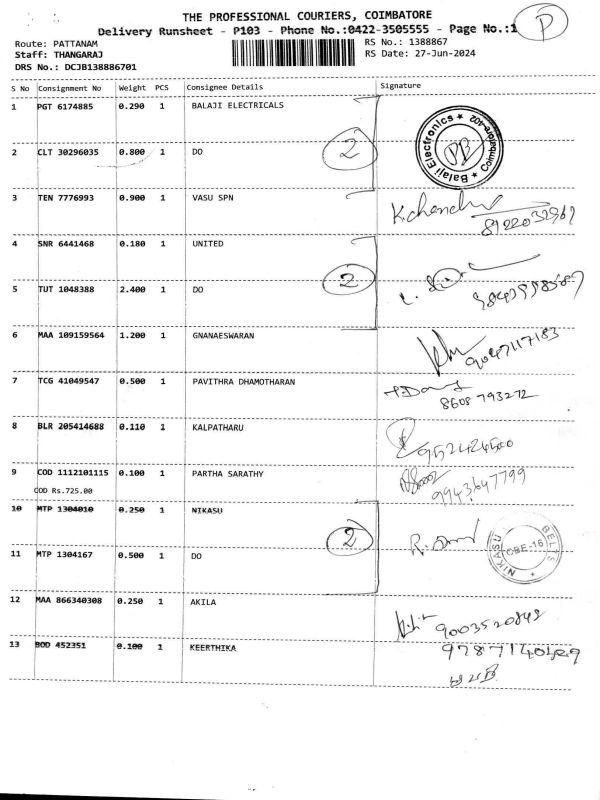 THE PROFESSIONAL COURIERS, COIMBATORE
Delivery Runsheet - P103 - Phone No.:0422-3505555 - Page No.:1
P
Route: PATTANAM
RS No.: 1388867
Staff: THANGARAJ
RS Date: 27-Jun-2024
DRS No.: DCJB138886701
S No Consignment No Weight PCS Consignee Details Signature
1 PGT 6174885 0.290 1 BALAJI ELECTRICALS
2 CLT 30296035 0.800 1 DO 2
Balaji Electronics * Coimbatore-402 *
3 TEN 7776993 0.900 1 VASU SPN
K.chandru
8122032967
4 SNR 6441468 0.180 1 UNITED
5 TUT 1048388 2.400 1 DO 2
6 MAA 109159564 1.200 1 GNANAESWARAN
9047117183
7 TCG 41049547 0.500 1 PAVITHRA DHAMOTHARAN
8608 793272
8 BLR 205414688 0.110 1 KALPATHARU
9 COD 1112101115 0.100 1 PARTHA SARATHY
9943647799
COD Rs.725.00
10 MTP 1304010 0.250 1 NIKASU
11 MTP 1304167 0.500 1 DO 2
NIKASU BELTS
CBE-16
12 MAA 866340308 0.250 1 AKILA
9003520842
13 BOD 452351 0.100 1 KEERTHIKA